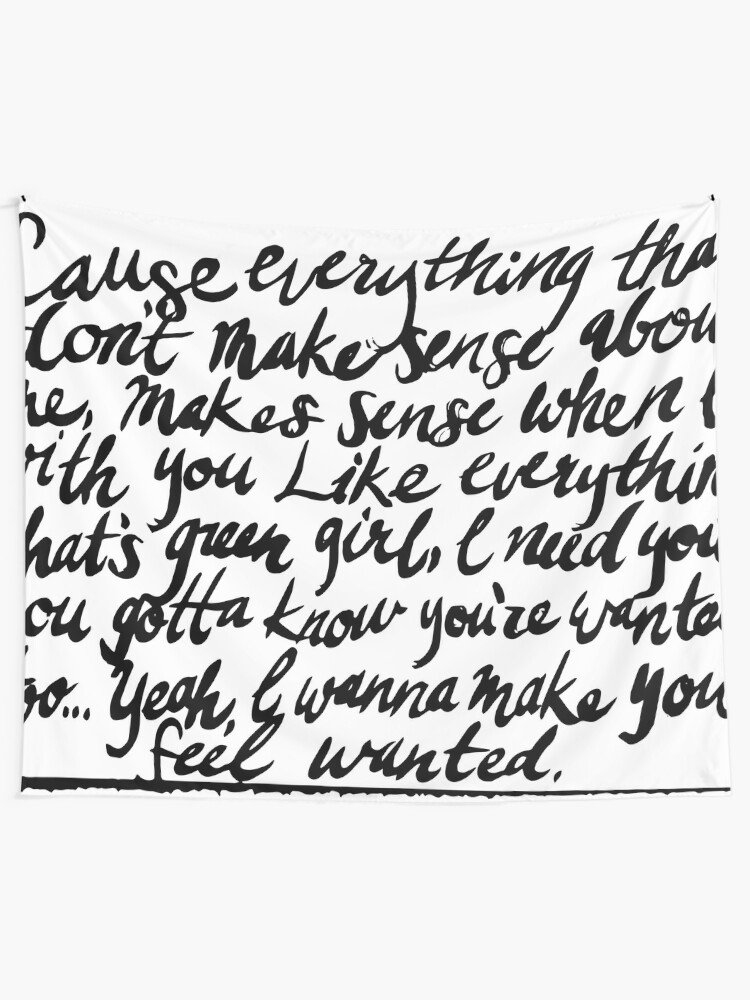 Cause everything tha
don't make sense abou
me, makes sense when I
with you Like everythin
that's green girl, I need you
you gotta know you're wante
too... Yeah, I wanna make you
feel wanted.